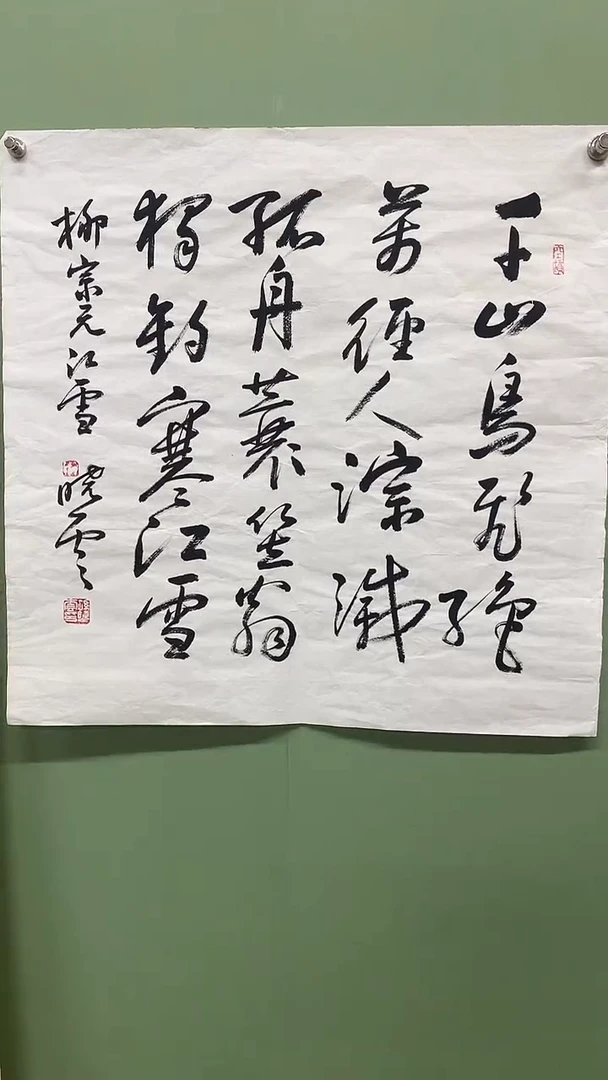 千山鳥飛絕
萬徑人踪滅
孤舟蓑笠翁
獨釣寒江雪
柳宗元江雪 曉雲